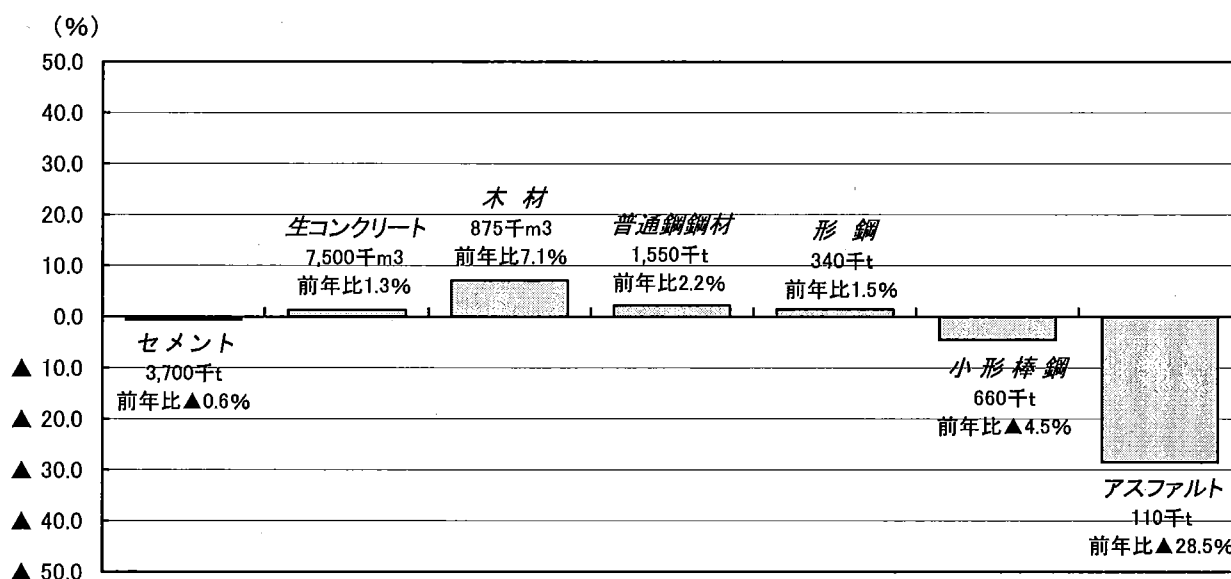 (%)
50.0
40.0
30.0
20.0
10.0
0.0
▲ 10.0
▲ 20.0
▲ 30.0
▲ 40.0
▲ 50.0
セメント
3,700千t
前年比▲0.6%
生コンクリート
7,500千m3
前年比1.3%
木 材
875千m3
前年比7.1%
普通鋼鋼材
1,550千t
前年比2.2%
形 鋼
340千t
前年比1.5%
小 形 棒 鋼
660千t
前年比▲4.5%
アスファルト
110千t
前年比▲28.5%